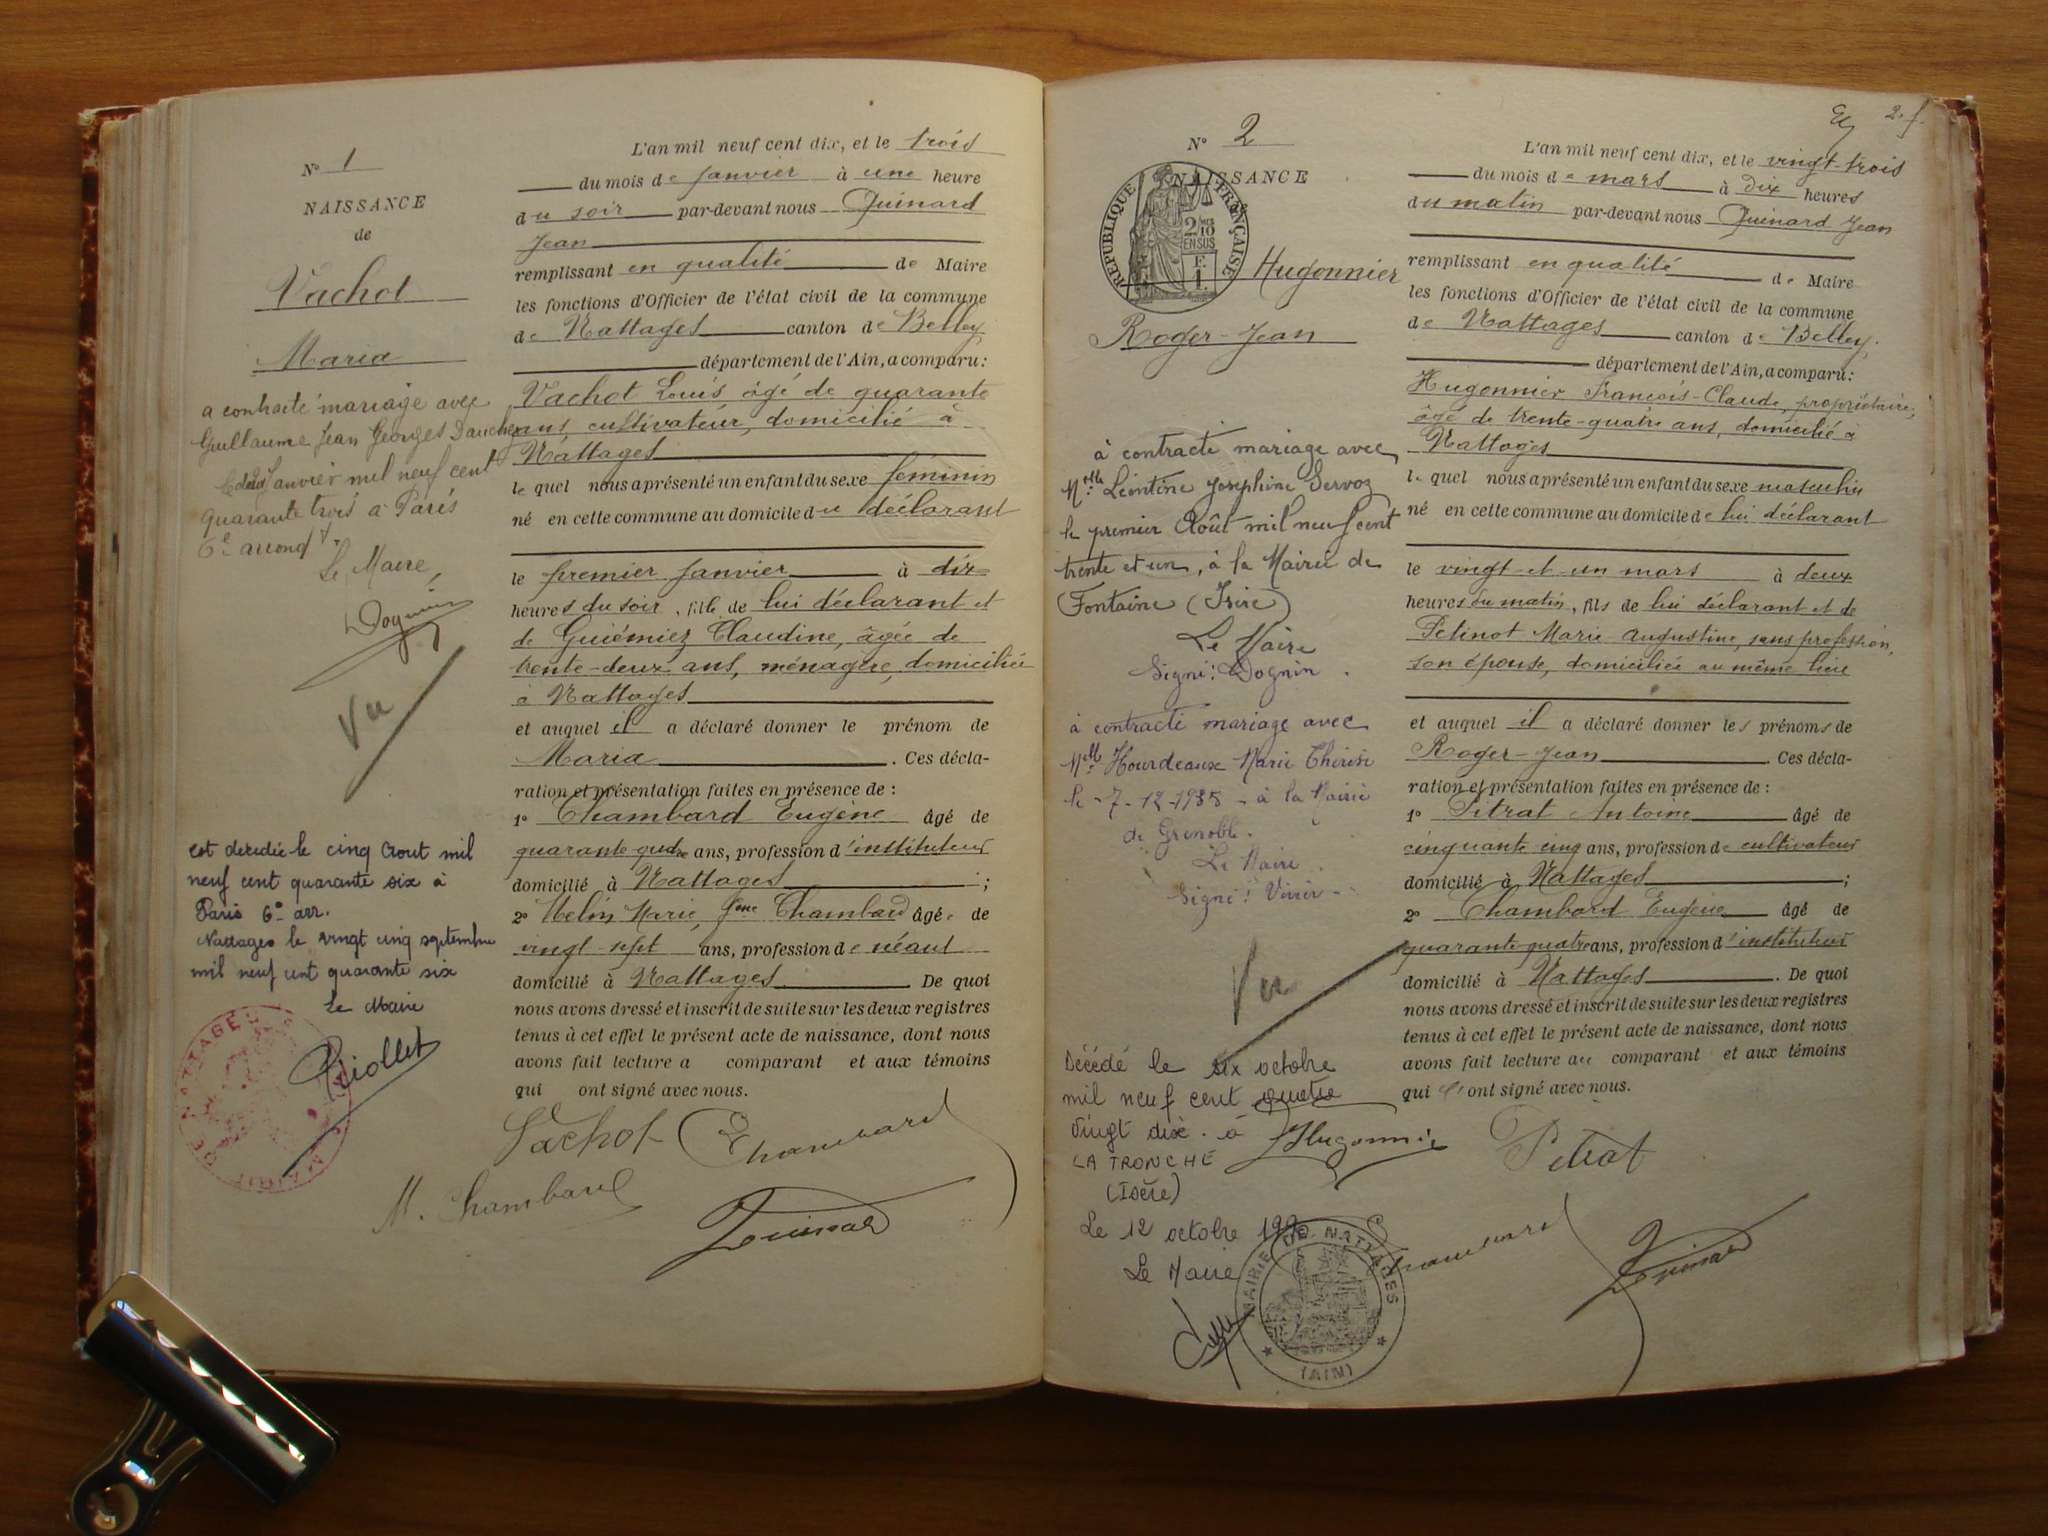 N° 1
NAISSANCE
de
Vachot
Maria
a contracté mariage avec
Guillaume Jean Georges
Janvier mil neuf cent
quarante trois à Paris
6e arrondt.
Le Maire,
Dognin
Vu
est décédée le cinq Aout mil
neuf cent quarante six à
Paris 6e arr.
Nattages le vingt cinq septembre
mil neuf cent quarante six
Le Maire
Riollet
L'an mil neuf cent dix, et le trois
du mois de janvier à une heure
du soir par-devant nous Quinard
Jean
remplissant en qualité de Maire
les fonctions d'Officier de l'état civil de la commune
de Nattages canton de Belley,
département de l'Ain, a comparu:
Vachot Louis âgé de quarante
ans, cultivateur, domicilié à
Nattages
lequel nous a présenté un enfant du sexe féminin
né en cette commune au domicile du déclarant
le premier janvier à dix
heures du soir, fille de lui déclarant et
de Guiémiez Claudine, âgée de
trente-deux ans, ménagère, domiciliée
à Nattages
et auquel il a déclaré donner le prénom de
Maria. Ces décla-
ration et présentation faites en présence de :
1° Chambard Eugène âgé de
quarante quatre ans, profession d'instituteur
domicilié à Nattages ;
2° Melin Marie, fme Chambard âgée de
vingt-sept ans, profession de néant
domicilié à Nattages. De quoi
nous avons dressé et inscrit de suite sur les deux registres
tenus à cet effet le présent acte de naissance, dont nous
avons fait lecture a comparant et aux témoins
qui ont signé avec nous.
Vachot Chambard
M. Chambard
Quinard
2. f.
N° 2
NAISSANCE
REPUBLIQUE FRANÇAISE
2/10
EN SUS
F.
1.
Hugonnier
Roger-Jean
à contracté mariage avec
Melle Léontine Joséphine Servoz
le premier Août mil neuf cent
trente et un, à la Mairie de
Fontaine (Isère)
Le Maire
Signé: Dognin.
à contracté mariage avec
Melle Hourdeaux Marie Thérèse
le -7-12-1935- à la Mairie
de Grenoble.
Le Maire.
Signé:
Vu
Décédé le six octobre
mil neuf cent quatre
vingt dix. à
LA TRONCHE
(Isère)
Le 12 octobre 1990
Le Maire
MAIRIE DE NATTAGES
(AIN)
L'an mil neuf cent dix, et le vingt-trois
du mois de mars à dix heures
du matin par-devant nous Quinard Jean
remplissant en qualité de Maire
les fonctions d'Officier de l'état civil de la commune
de Nattages canton de Belley,
département de l'Ain, a comparu:
Hugonnier François-Claude, propriétaire,
âgé de trente-quatre ans, domicilié à
Nattages
lequel nous a présenté un enfant du sexe masculin
né en cette commune au domicile de lui déclarant
le vingt-et-un mars à deux
heures du matin, fils de lui déclarant et de
Petinot Marie-Augustine, sans profession,
son épouse, domiciliée au même lieu
et auquel il a déclaré donner les prénoms de
Roger-Jean. Ces décla-
ration et présentation faites en présence de :
1° Pitrat Antoine âgé de
cinquante-cinq ans, profession de cultivateur
domicilié à Nattages ;
2° Chambard Eugène âgé de
quarante quatre ans, profession d'instituteur
domicilié à Nattages. De quoi
nous avons dressé et inscrit de suite sur les deux registres
tenus à cet effet le présent acte de naissance, dont nous
avons fait lecture au comparant et aux témoins
qui ont signé avec nous.
Hugonnier Pitrat
Chambard Quinard